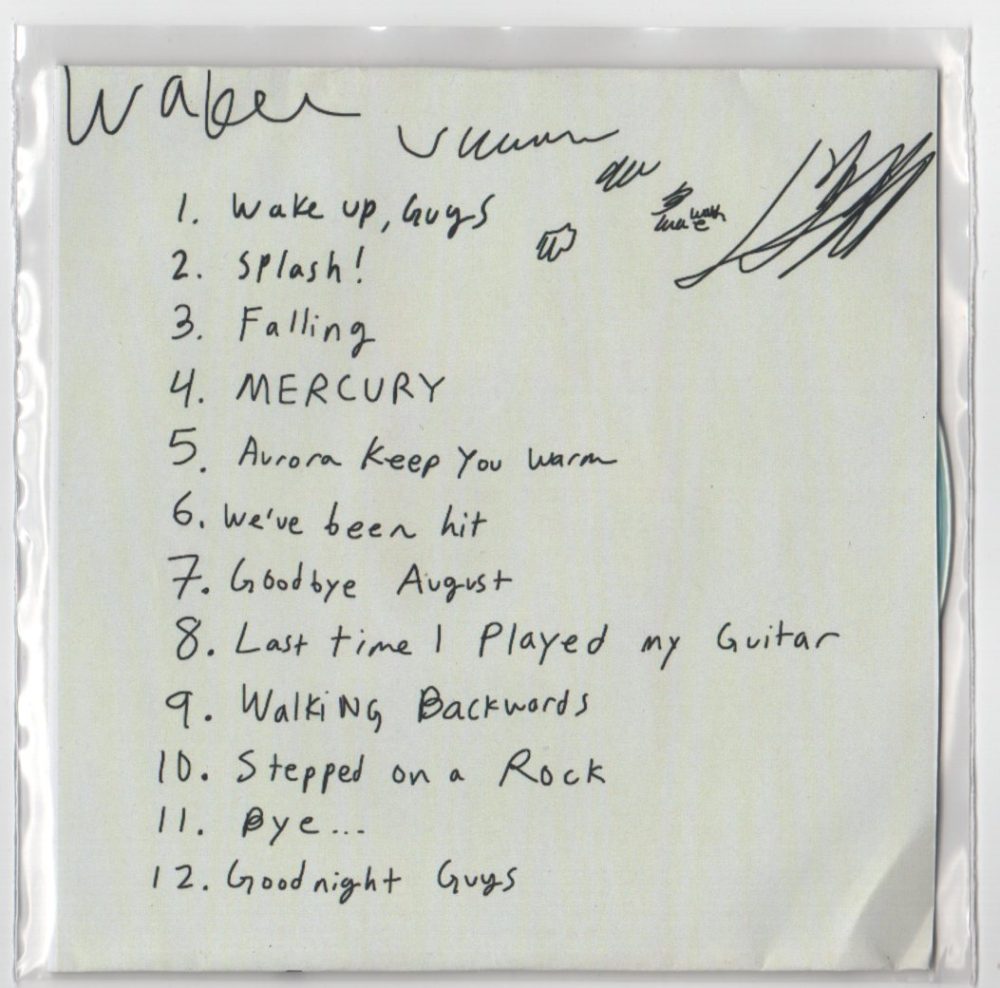 1. Wake up, Guys
2. Splash!
3. Falling
4. MERCURY
5. Aurora Keep You Warm
6. We've been hit
7. Goodbye August
8. Last time I Played my Guitar
9. WalkiNG Backwords
10. Stepped on a Rock
11. Bye...
12. Goodnight Guys